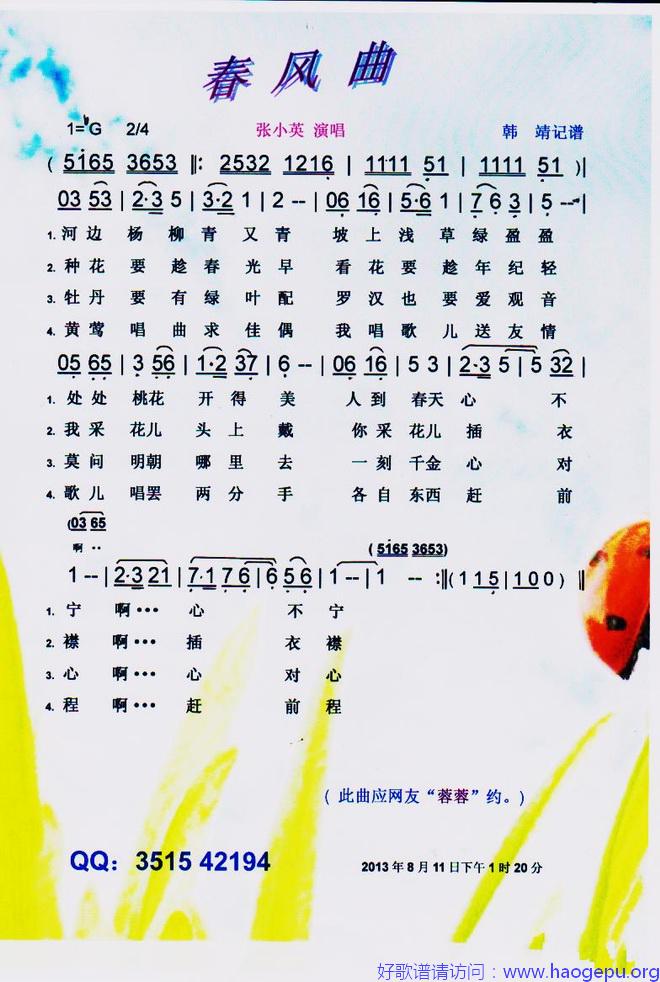 春风曲
1=♭G 2/4 张小英 演唱 韩 靖记谱
( 5165 3653 ‖: 2532 1216 | 1111 51 | 1111 51 )|
03 53 | 2·3 5 | 3·2 1 | 2 -- | 06 16 | 5·6 1 | 7 6 3 | 5 -- |
1. 河 边 杨 柳 青 又 青 坡 上 浅 草 绿 盈 盈
2. 种 花 要 趁 春 光 早 看 花 要 趁 年 纪 轻
3. 牡 丹 要 有 绿 叶 配 罗 汉 也 要 爱 观 音
4. 黄 莺 唱 曲 求 佳 偶 我 唱 歌 儿 送 友 情
05 65 | 3 56 | 1·2 37 | 6 -- | 06 16 | 5 3 | 2·3 5 | 5 32 |
1. 处 处 桃花 开 得 美 人 到 春天 心 不
2. 我 采 花儿 头 上 戴 你 采 花儿 插 衣
3. 莫 问 明朝 哪 里 去 一 刻 千金 心 对
4. 歌 儿 唱罢 两 分 手 各 自 东西 赶 前
(03 65
啊 ·· ( 5165 3653)
1 -- | 2·3 21 | 7·1 7 6 | 6 5 6 | 1 -- | 1 -- :‖( 1 1 5 | 1 0 0 ) ‖
1. 宁 啊··· 心 不 宁
2. 襟 啊··· 插 衣 襟
3. 心 啊··· 心 对 心
4. 程 啊··· 赶 前 程
( 此曲应网友“蓉蓉”约。)
QQ：3515 42194 2013 年 8 月 11 日下午 1 时 20 分
好歌谱请访问：www.haogepu.org